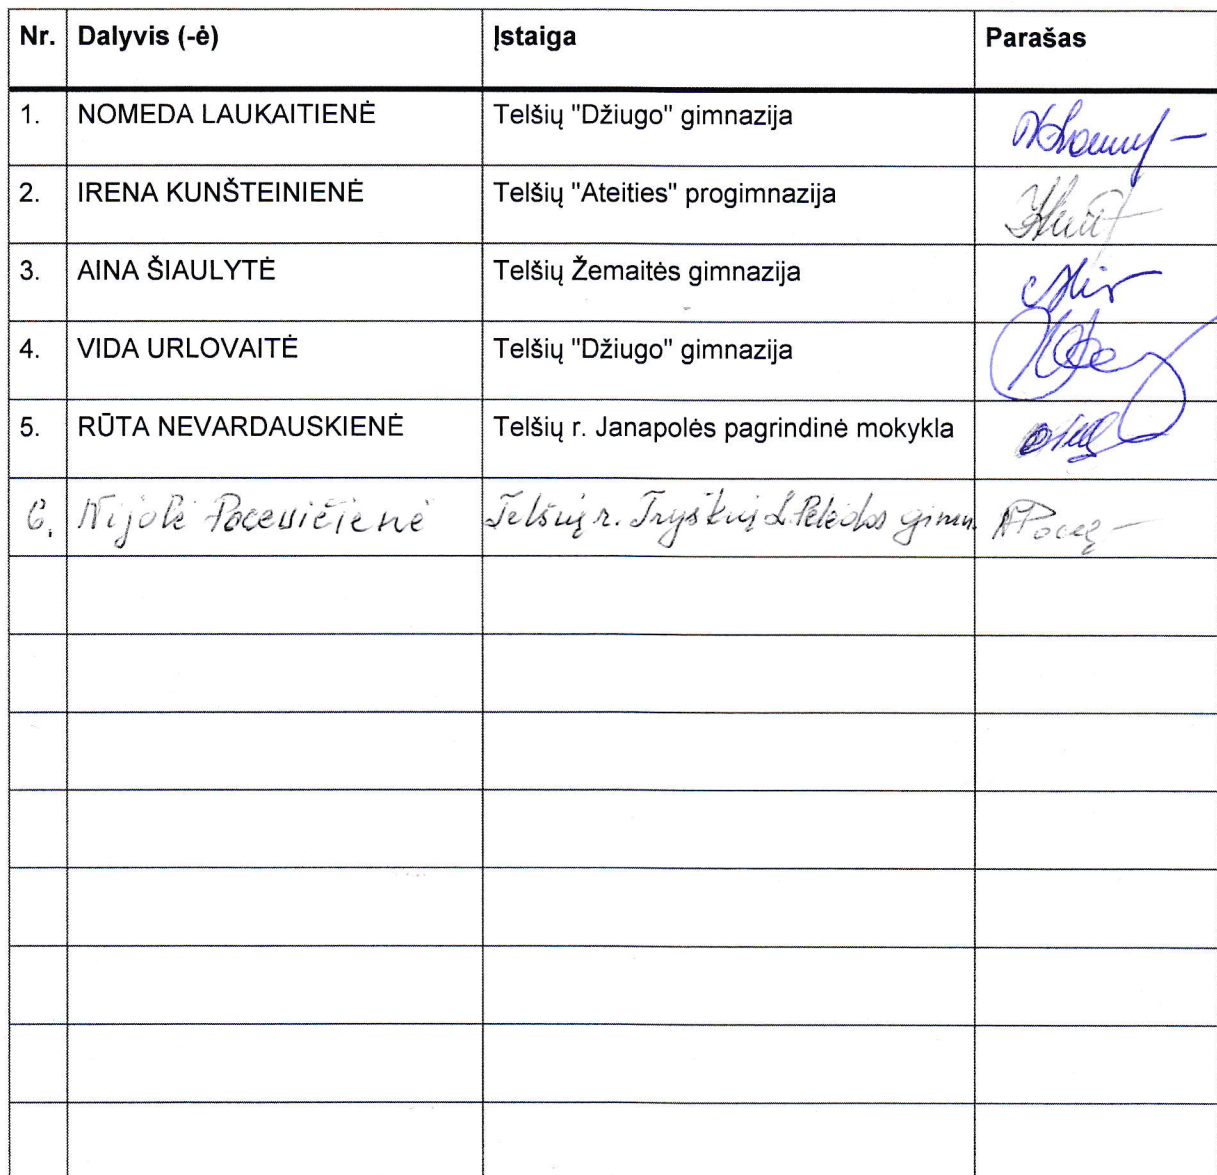 Nr. Dalyvis (-ė) Įstaiga Parašas
1. NOMEDA LAUKAITIENĖ Telšių "Džiugo" gimnazija
2. IRENA KUNŠTEINIENĖ Telšių "Ateities" progimnazija
3. AINA ŠIAULYTĖ Telšių Žemaitės gimnazija
4. VIDA URLOVAITĖ Telšių "Džiugo" gimnazija
5. RŪTA NEVARDAUSKIENĖ Telšių r. Janapolės pagrindinė mokykla
6. Nijolė Pocevičienė Telšių r. Tryškių L. Pelėdos gimn.